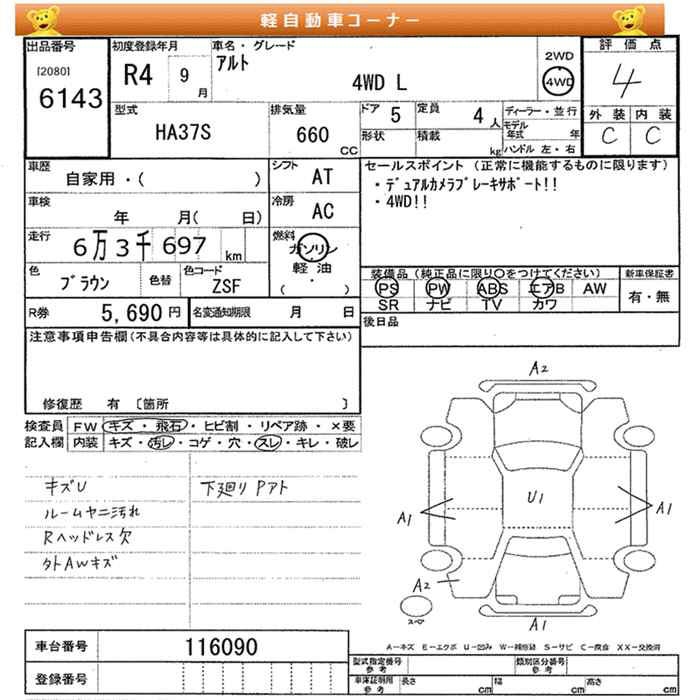 軽自動車コーナー
出品番号
[2080]
6143
初度登録年月
R4 9月
車名・グレード
アルト
4WD L
2WD
4WD
評価点
4
外装 内装
C C
型式
HA37S
排気量
660 CC
ドア 5
定員 4人
形状
積載 kg
ディーラー・並行
モデル年式 年
ハンドル 左・右
車歴
自家用・( )
シフト
AT
車検
年 月( 日)
冷房
AC
走行
6万3千697 km
燃料
ガソリン
軽油
( ・ )
色
ブラウン
色替
色コード
ZSF
R券 5,690円
名変通知期限 月 日
セールスポイント (正常に機能するものに限ります)
・デュアルカメラブレーキサポート!!
・4WD!!
装備品(純正品に限り〇をつけてください)
PS PW ABS エアB AW
SR ナビ TV カワ
新車保証書
有・無
後日品
注意事項申告欄(不具合内容等は具体的に記入して下さい)
修復歴 有 〔箇所 〕
検査員記入欄
FW キズ・飛石・ヒビ割・リペア跡・×要
内装 キズ・汚レ・コゲ・穴・スレ・キレ・破レ
キズU
ルームヤニ汚れ
Rヘッドレス欠
外AWキズ
下廻りPアト
A2
U1
A1
A1
A2
A1
スペア
A－キズ E－エクボ U－凹み W－補修跡 S－サビ C－腐食 XX－交換済
車台番号 116090
登録番号
型式指定番号 参考
類別区分番号 参考
車庫証明用 参考
長さ cm
幅 cm
高さ cm